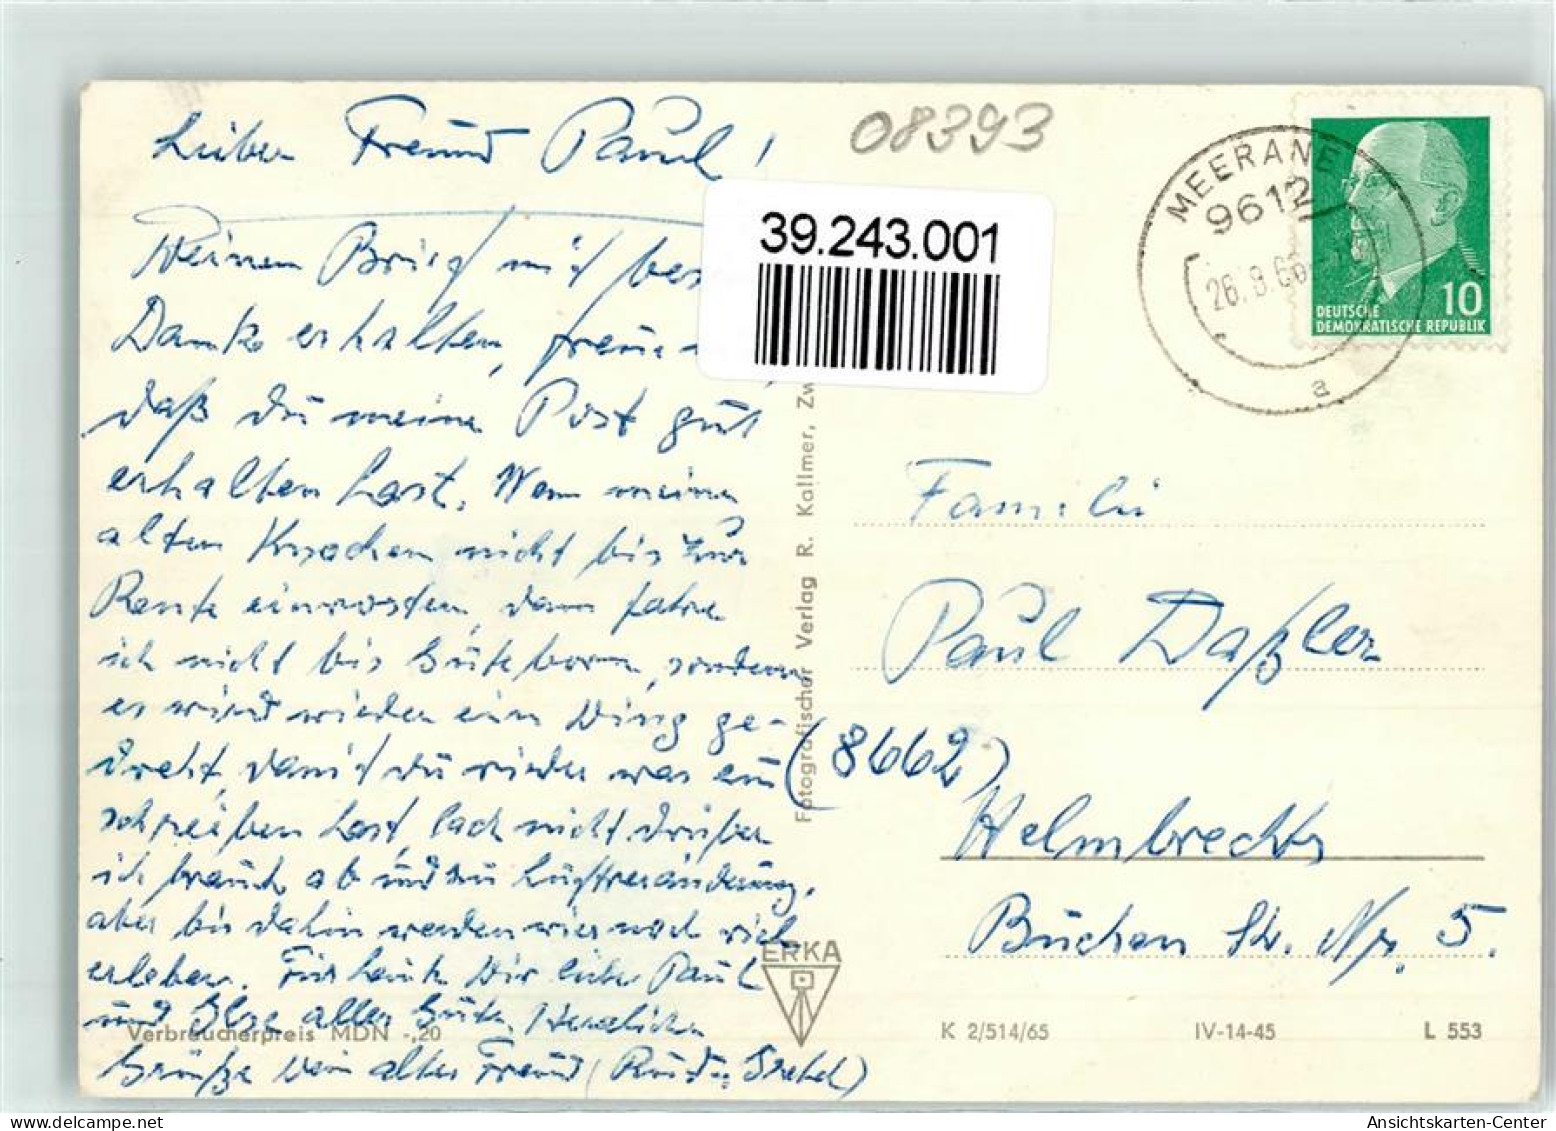 Lieber Freund Paul!
Deinen Brief mit
Danke erhalten, freue
daß du meine Post gut
erhalten hast. Wenn meine
alten Knochen nicht bis zur
Rente einrosten, dann fahre
ich nicht bis Güterborn, sondern
es wird wieder ein Ding ge-
dreht, damit du wieder was zu
schreiben hast, lach nicht drüber
ich brauch ab und zu Luftveränderung,
aber bis dahin werden wir noch viel
erleben. Für heute Dir lieber Paul
und alles Gute. Herzlichen
Grüße Dein alter Freund (Rudi
08393
39.243.001
MEERANE
9612
26.9.66
a
10
DEUTSCHE
DEMOKRATISCHE REPUBLIK
Familie
Paul Daßler
(8662)
Helmbrechts
Buchen Str. Nr. 5.
Fotografischer Verlag R. Kallmer, Zw
ERKA
Verbraucherpreis MDN -,20
K 2/514/65 IV-14-45 L 553
Ansichtskarten-Center